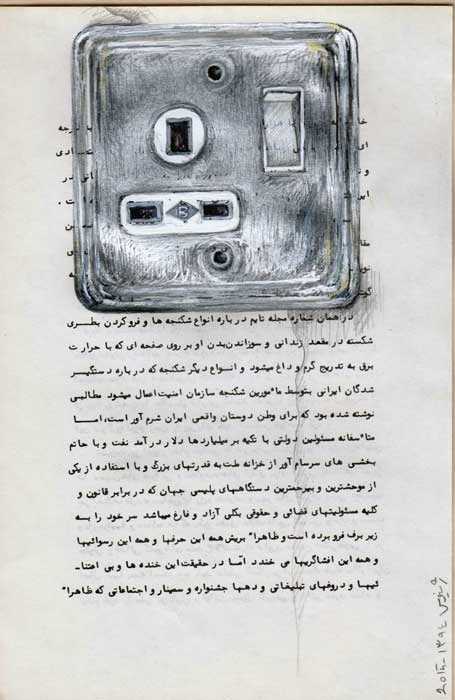 در همان شماره مجله تایم درباره انواع شکنجه ها و فروکردن بطـری
شکسته در مقعد زندانی و سوزاندن‌بدن او بر روی صفحه ای که با حرارت
برق به تدریج گرم و داغ میشود و انـواع دیگر شکنجه که درباره دستگیـر
شدگان ایرانی بتوسط مأمورین شکنجه سازمان امنیت اعمال میشود مطالبی
نوشته شده بود که برای وطن دوستان واقعی ایران شرم آور است، امـا
متأسفانه مسئولین دولتی با تکیه بر میلیاردها دلار درآمد نفت و با حاتم
بخشی های سرسام آور از خزانه ملت به قدرتهای بزرگ و با استفاده از یکی
از موحشترین و بیرحمترین دستگاههای پلیسی جهان که در برابر قانون و
کلیه مسئولیتهای قضائی و حقوقی بکلی آزاد و فارغ میباشد سر خود را بـه
زیر برف فرو برده است و ظاهراً بریش همه این حرفها و همه این رسوائیها
و همه این افشاگریها می خندد امّا در حقیقت این خنده ها و بی اعتنا-
ئیها و دروغهای تبلیغاتی و دهها جشنواره و سمینار و اجتماعاتی که ظاهراً
۱۳۹۴-2015